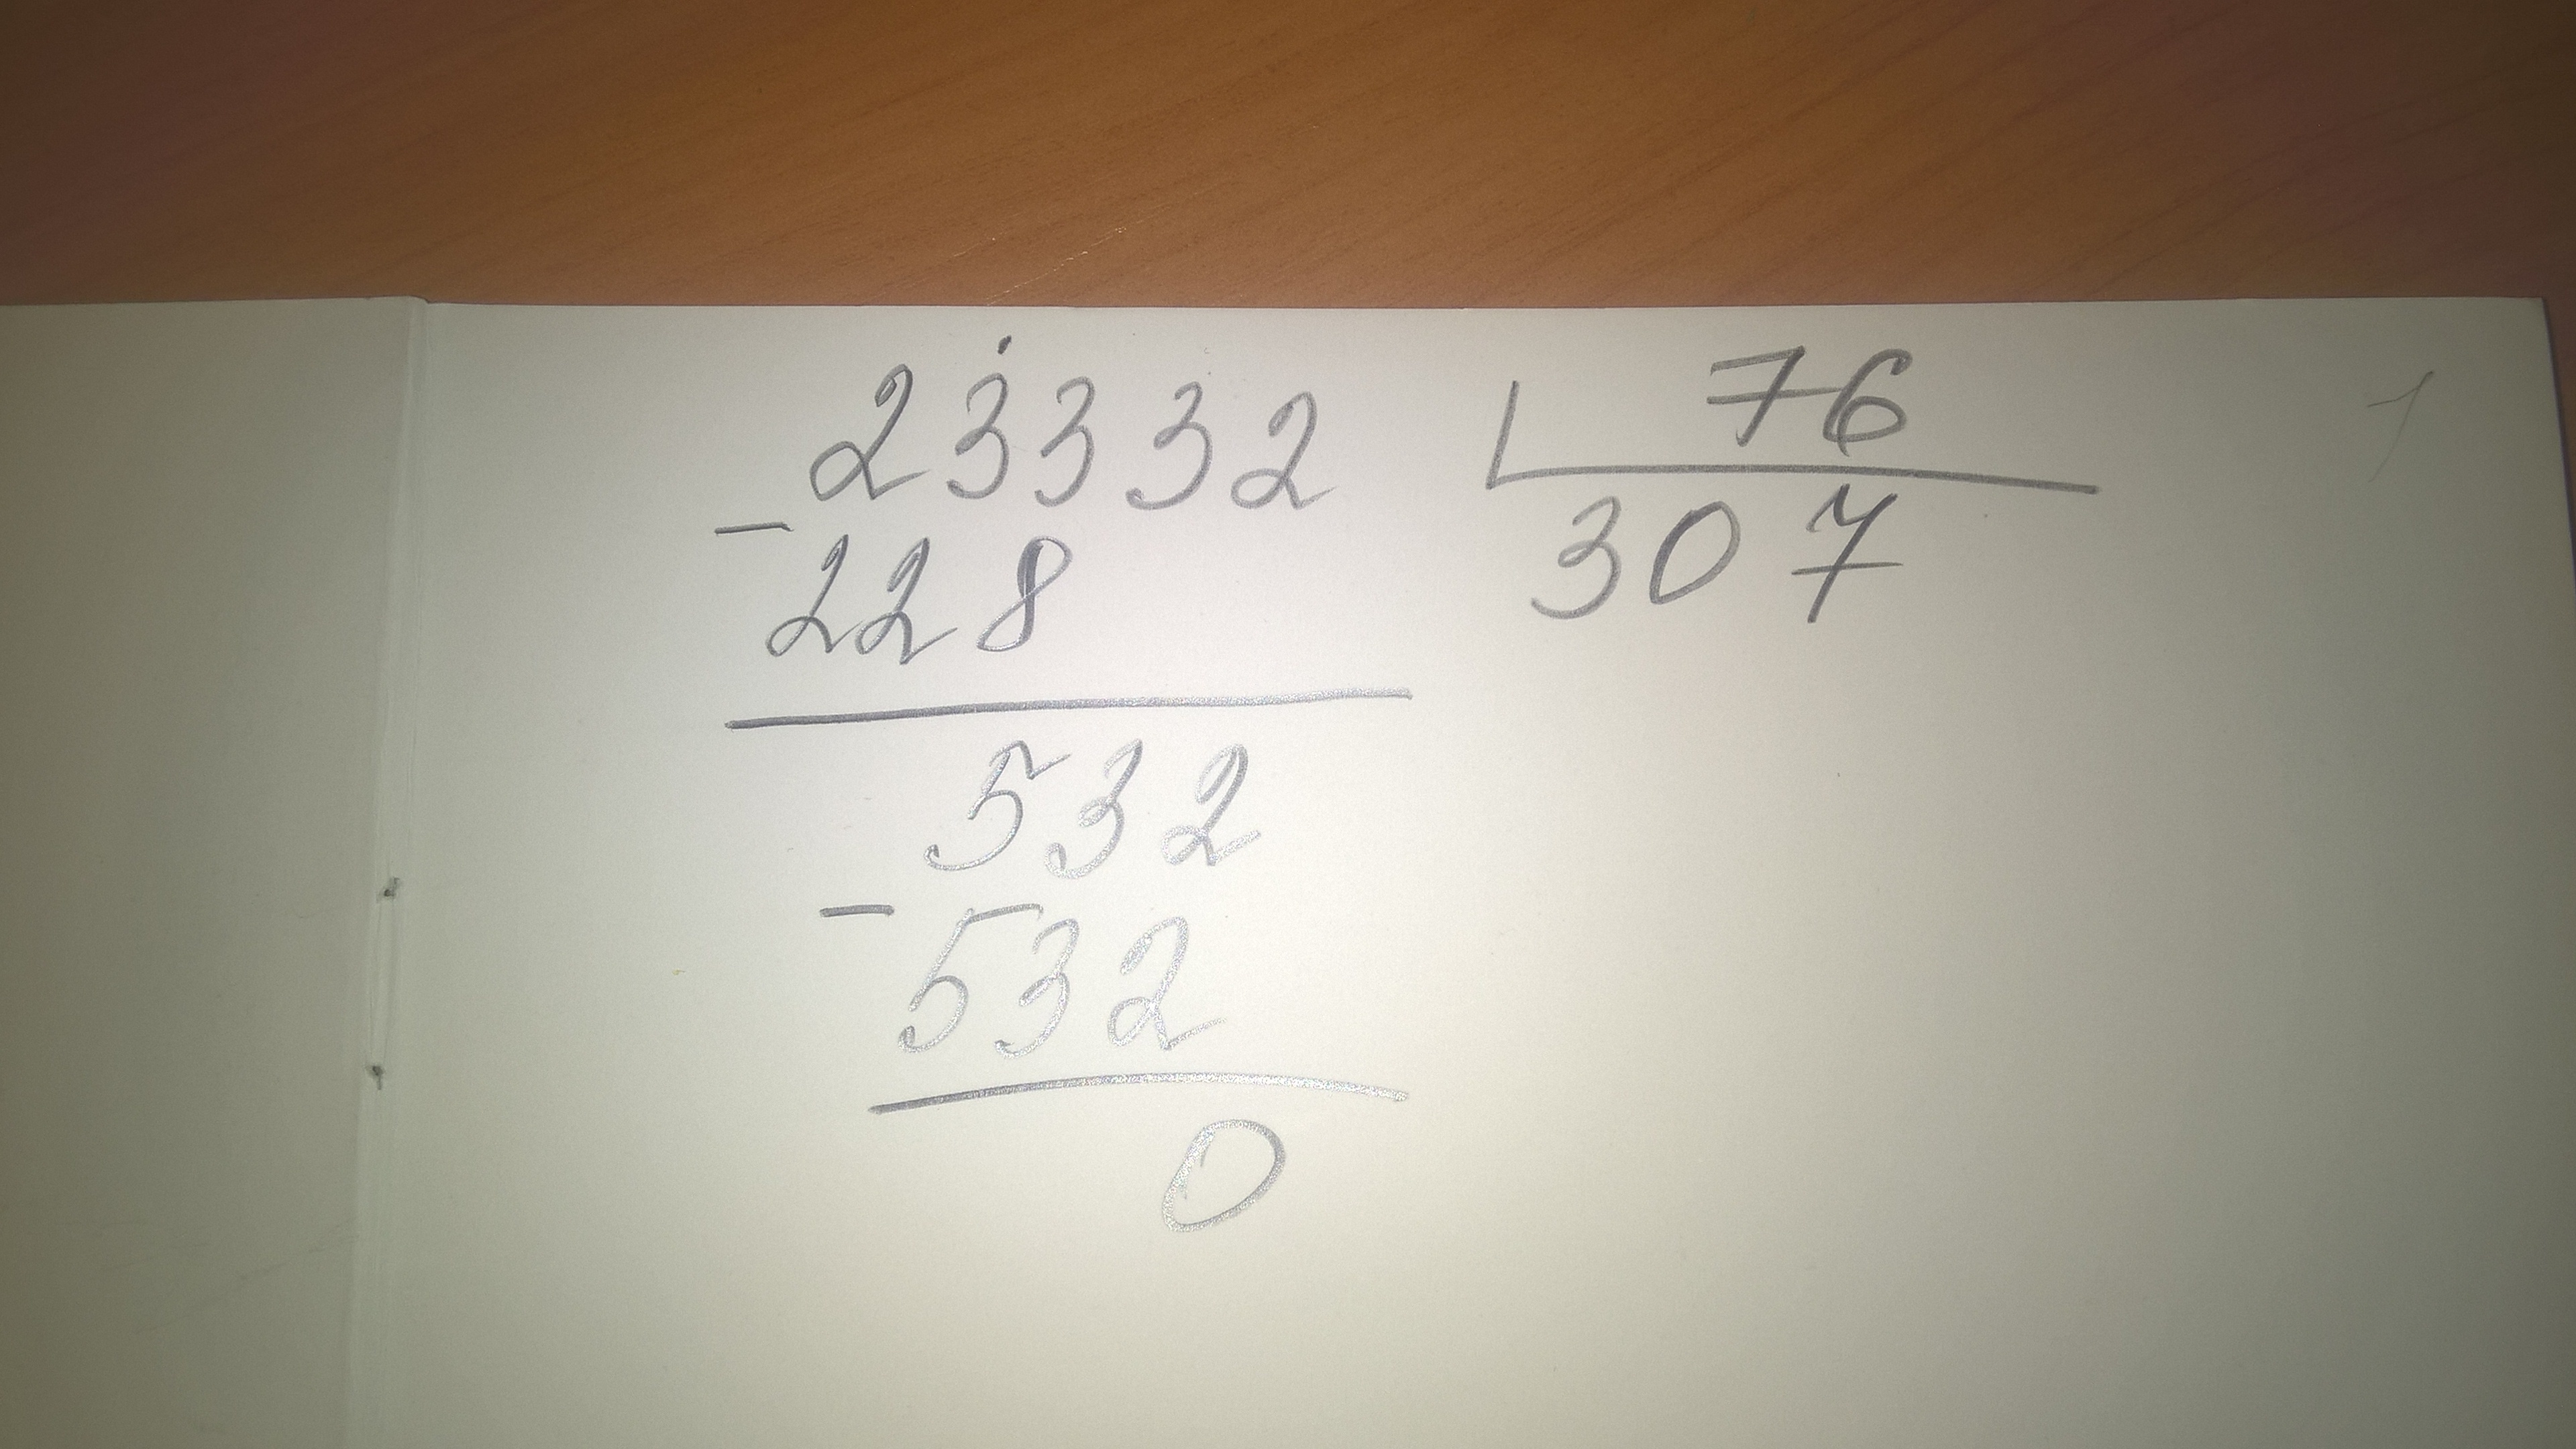 23332 76
- 307
228
532
-
532
0